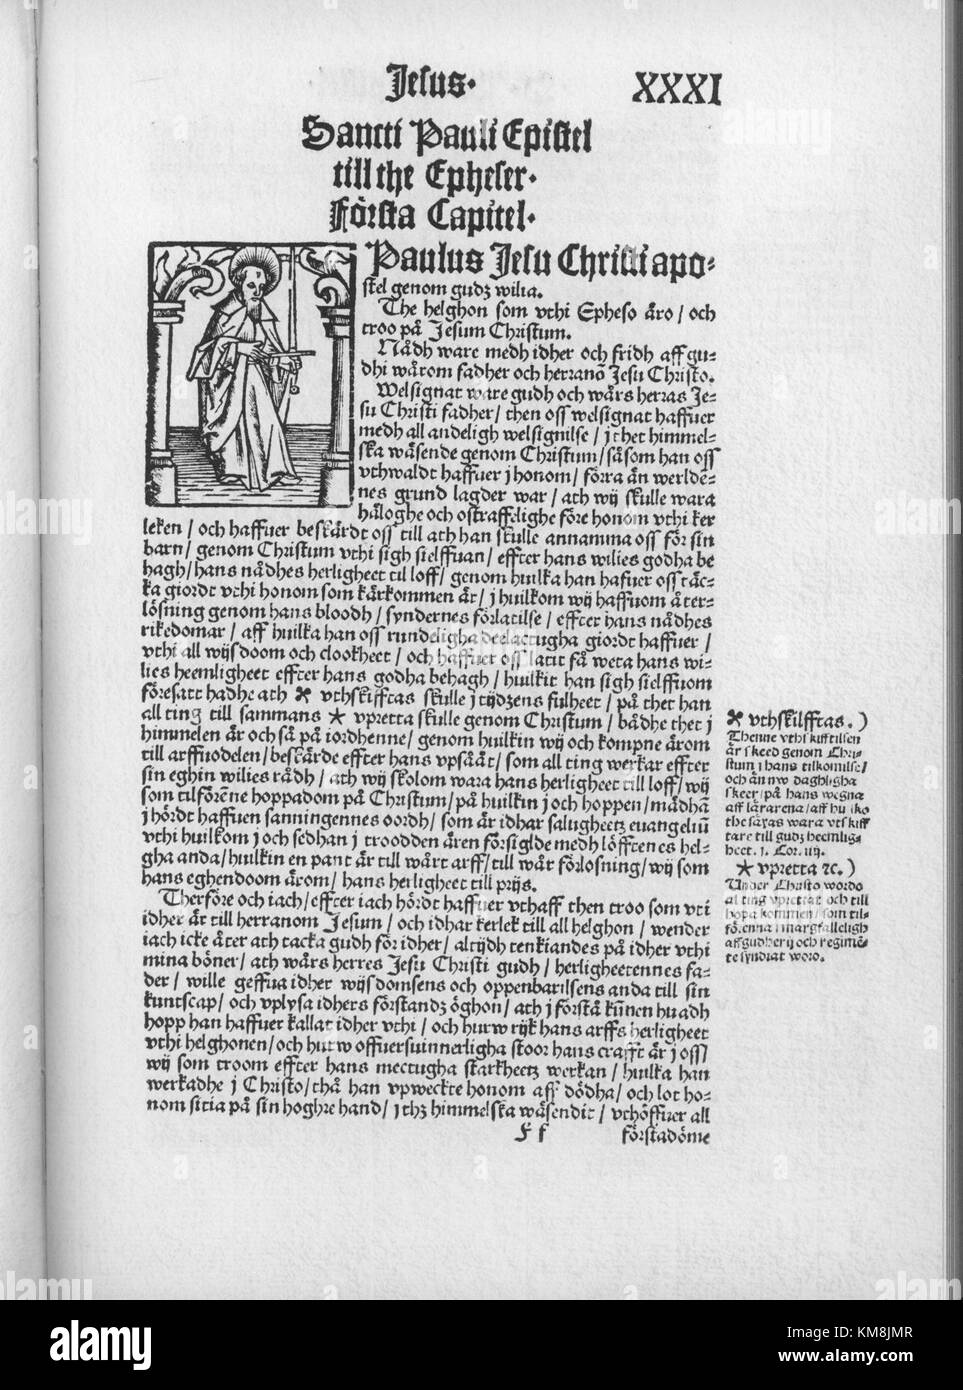 Jesus.
XXXI
Sancti Pauli Epistel
till the Epheser.
Första Capitel.
Paulus Jesu Christi apo-
stel genom gudz wilia.
The helghon som vthi Epheso äro / och
troo på Jesum Christum.
Nådh ware medh idher och fridh aff gu-
dhi wårom fadher och herranō Jesu Christo.
Welsignat ware gudh och wårs herras Je-
su Christi fadher / then oss welsignat haffuer
medh all andeligh welsignilse / j thet himmel-
ska wäsende genom Christum / såsom han oss
vthwaldt haffuer j honom / förra än werldē-
nes grund lagder war / ath wij skulle wara
häloghe och ostraffelighe före honom vthi ker
leken / och haffuer beskärdt oss till ath han skulle annamma oss för sin
barn / genom Christum vthi sigh sielffuan / effter hans wilies godha be
hagh / hans nådhes herligheet til loff / genom huilka han hafuer oss täc-
ka giordt vthi honom som kärkommen är / j huilkom wij haffuom åter-
lösning genom hans bloodh / syndernes förlatilse / effter hans nådhes
rikedomar / aff huilka han oss rundeligha deelactugha giordt haffuer /
vthi all wijsdoom och clookheet / och haffuer oss latit få weta hans wi-
lies heemligheet effter hans godha behagh / huilkit han sigh sielffuom
föresatt hadhe ath ✠ vthskifftas skulle j tijdzens fulheet / på thet han
all ting till sammans ★ vpretta skulle genom Christum / bådhe thet j
himmelen är och så på iordhenne / genom huilkin wij och kompne ärom
till arffuodelen / beskärde effter hans vpsäät / som all ting werkar effter
sin eghin wilies rådh / ath wij skolom wara hans herligheet till loff / wij
som tilförēne hoppadom på Christum / på huilkin j och hoppen / mådhā
j hördt haffuen sanningennes oordh / som är idhar salugheetz euangeliū
vthi huilkom j och sedhan j troodden ären försiglde medh löfftenes hel-
gha anda / huilkin en pant är till wårt arff / till wår förlosning / wij som
hans eghendoom ärom / hans herligheet till prijs.
Therföre och iach / effter iach hördt haffuer vthaff then troo som vti
idher är till herranom Jesum / och idhar kerlek till all helghon / wender
iach icke åter ath tacka gudh för idher / altijdh tenkiandes på idher vthi
mina böner / ath wårs herres Jesu Christi gudh / herligheetennes fa-
der / wille geffua idher wijsdomsens och oppenbarilsens anda till sin
kuntscap / och vplysa idhers förstandz öghon / ath j förstå kūnen huadh
hopp han haffuer kallat idher vthi / och hurw rijk hans arffs herligheet
vthi helghonen / och hurw offuersuinnerligha stoor hans crafft är j oss /
wij som troom effter hans mectugha starkheetz werkan / huilka han
werkadhe j Christo / thå han vpweckte honom aff dödha / och lot ho-
nom sittia på sin hoghre hand / j thz himmelska wäsendit / vthöffuer all
F f
förstadöme
✠ vthskifftas.)
Thenne vthskifftilsen
är skeed genom Chri-
stum j hans tilkomilse /
och än nw daghligha
skeer / på hans wegna
aff lärarena / aff huilko
the säyas wara vtskiff
tare till gudz heemlig-
heet. j. Cor. iiij.
★ vpretta ꝛc.)
Vnder Christo wordo
al ting vprettat och till
hopa kommen / som til-
förenna j margfalleligh
affgudherij och regimē-
te syndrat woro.
alamy
KM8JMR
www.alamy.com